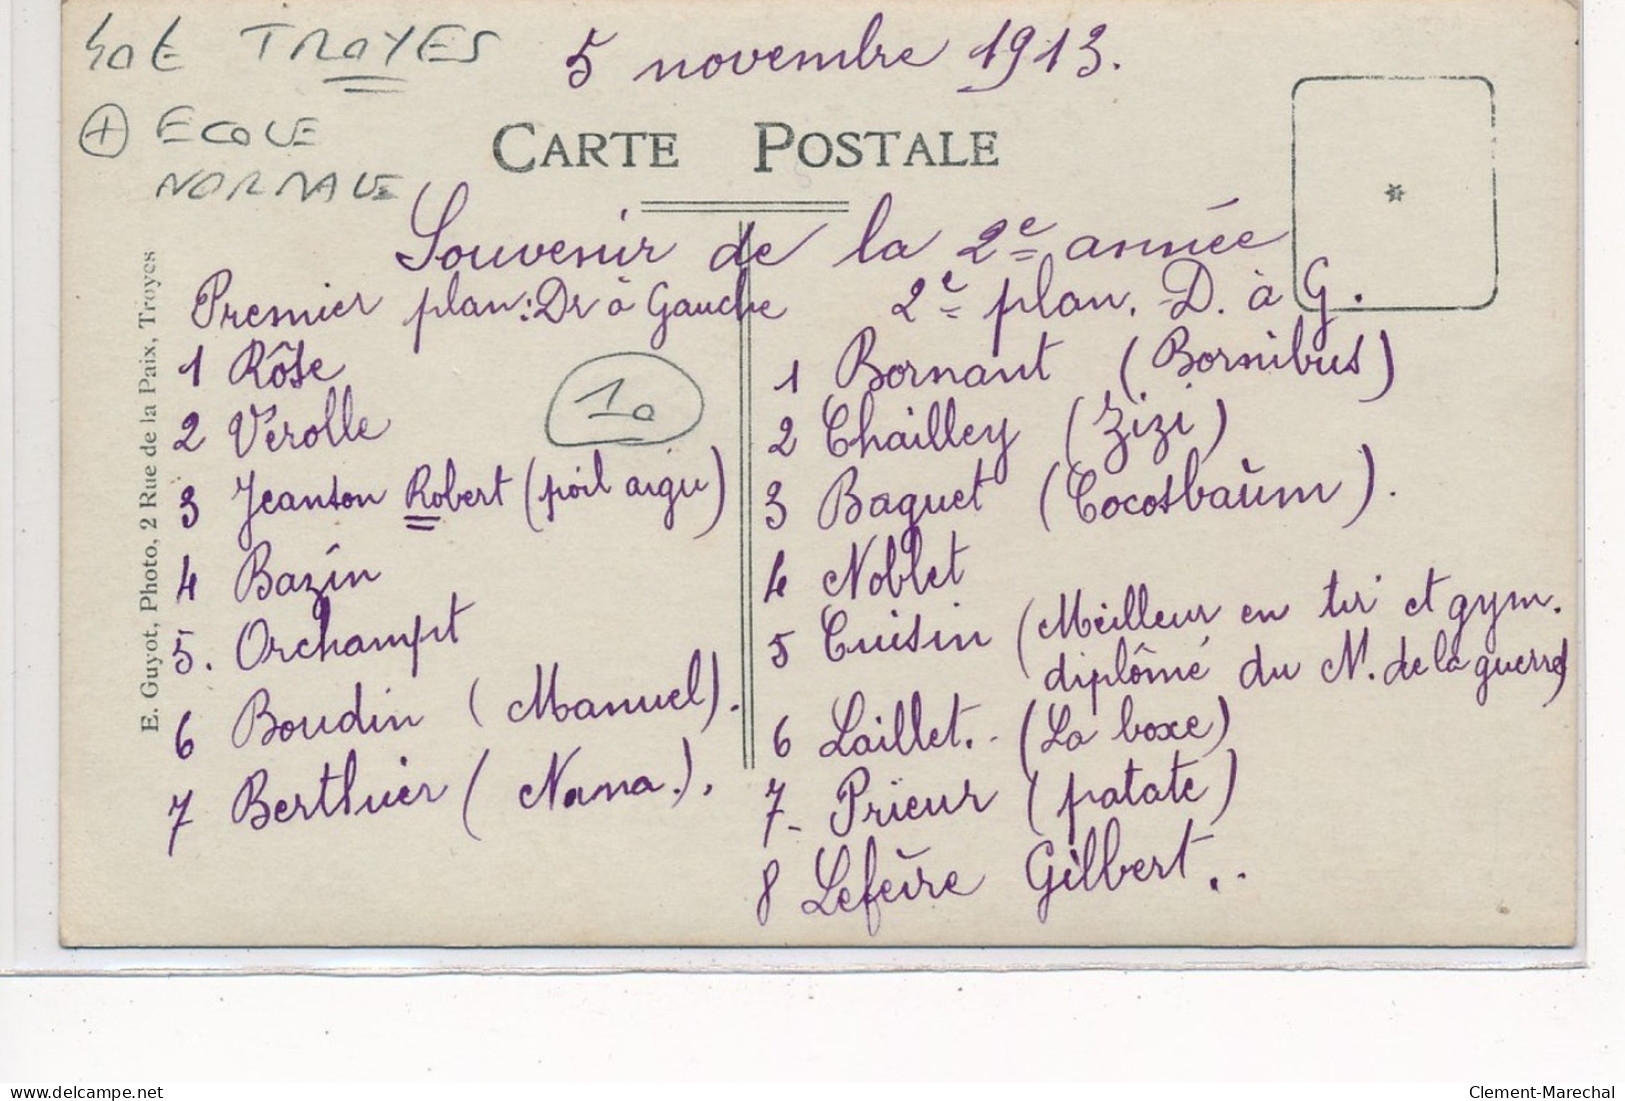 TROYES
5 novembre 1913.
+ ECOLE
NORMALE
CARTE POSTALE
Souvenir de la 2e année
Premier plan: Dr à Gauche
1 Rôse
2 Vérolle
3 Jeanson Robert (poil aigu)
4 Bazin
5. Orchampt
6 Boudin (Manuel).
7 Berthier (Nana.).
10
2e plan. D. à G.
1 Bornant (Bornibus)
2 Chailley (Zizi)
3 Baquet (Cocosbaüm).
4 Noblet
5 Cuisin (Meilleur en tir et gym.
diplômé du M. de la guerre)
6 Laillet.. (La boxe)
7- Prieur (patate)
8 Lefèvre Gilbert..
E. Guyot, Photo, 2 Rue de la Paix, Troyes
delcampe.net
Clement-Marechal